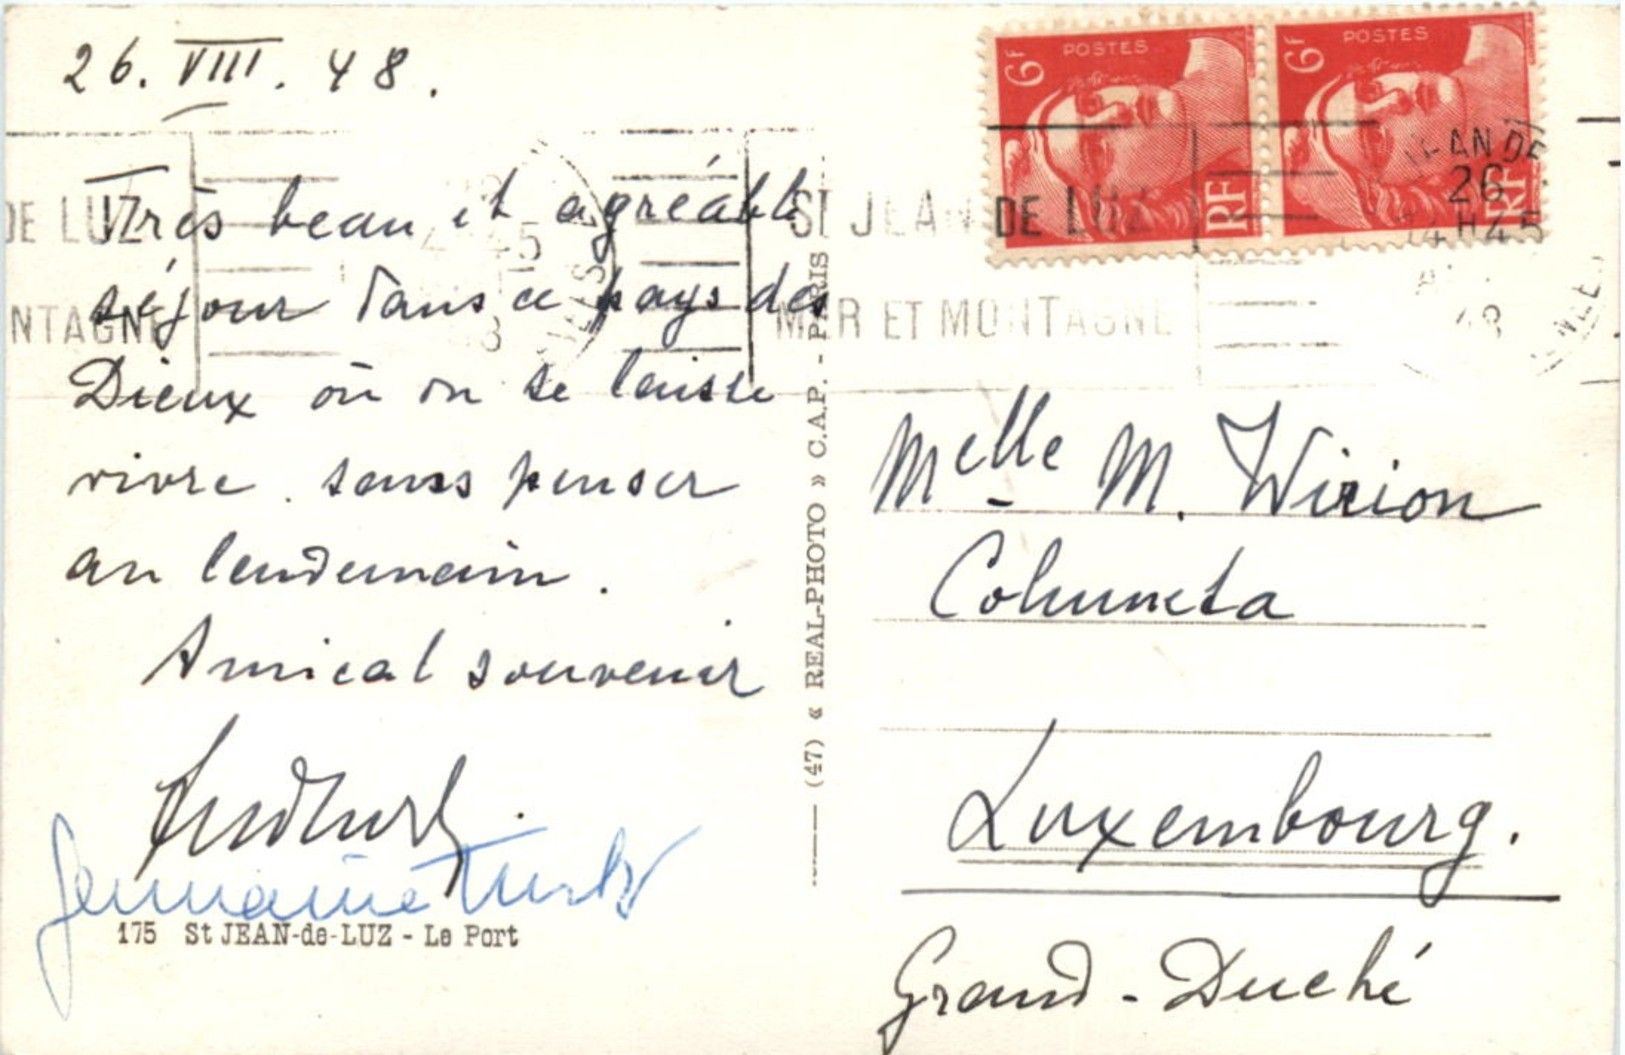 26. VIII. 48.
Très beau et agréable
séjour dans ce pays des
Dieux où on se laisse
vivre sans penser
au lendemain.
Amical souvenir
Germaine
175 St JEAN-de-LUZ - Le Port
(47) « REAL-PHOTO » C.A.P. - PARIS
6F POSTES RF
6F POSTES RF
DE LUZ
NTAGNE
ST JEAN DE LUZ
MER ET MONTAGNE
JEAN DE
26
14 H 45
48
Melle M. Wirion
Columeta
Luxembourg.
Grand-Duché